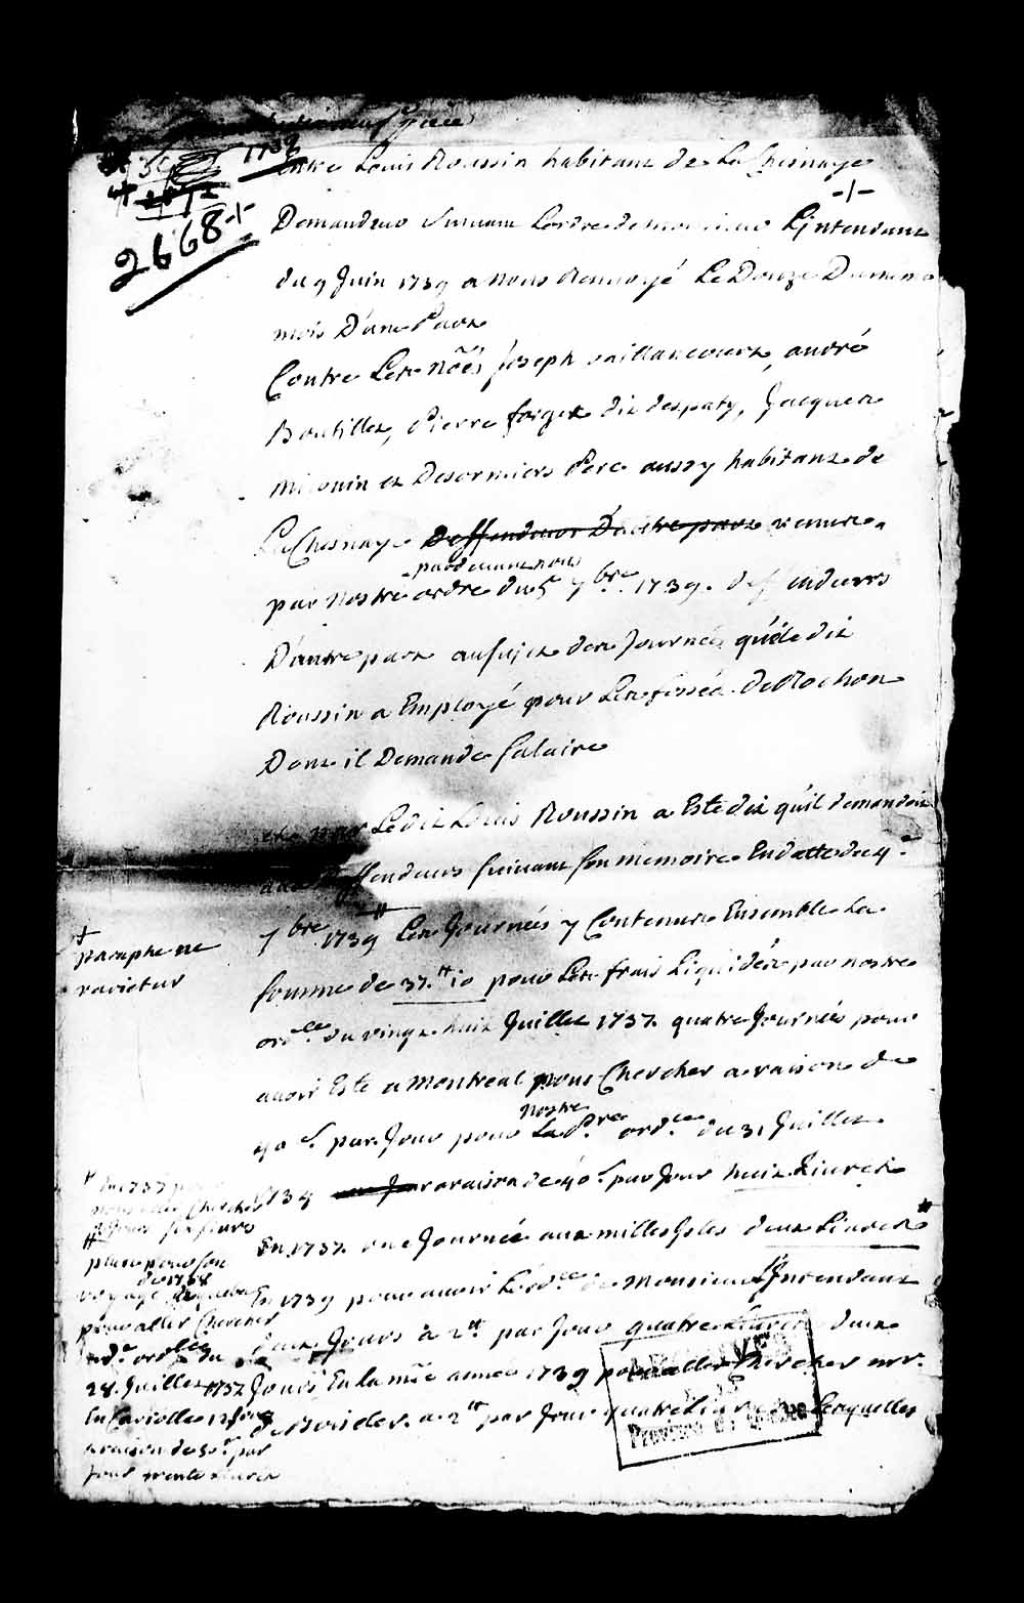 1739
2668
Entre Louis Roussin habitant de La Chesnaye
Demandeur suivant L'ordre de monsieur L'Jntendant
du 9 Juin 1739 a nous Renvoyé Le Douze Du mesme
mois D'une Part
Contre Les només Joseph vaillancourt, andré
Boutillet, Pierre forget dit despaty, Jacques
et Desormiers Pere aussy habitant de
LaChesnaye Deffendeurs D'autre part venure
pardevant nous
par nostre ordre du 5 7bre 1739. deffendeurs
D'autre part au sujet des Journées qu'Le dit
Roussin a Employé pour Les fossés de Rochon
Dont il Demande salaire
Ledit Louis Roussin a Esté dit qu'il demandoit
aux deffendeurs suivant son memoire En datte du 4e
7bre 1739 Les Journées y Contenues Ensemble La
somme de 37.tt 10 pour Les frais Liquidés par nostre
ordce du vingt huit Juillet 1737. quatre Journées pour
avoir Esté a Montreal pour Chercher a raison de
nostre
40 s. par Jour pour La d.re ordce du 31 Juillet
1739 a raison de 40 s par Jour huit Livres
En 1737. une Journée aux milles Jsles deux Livres
En 1739 pour avoir L'ordce de Monsieur L'Jntendant
deux Jours à 2tt par Jour quatre Livres deux
Jours En la mee année 1739 pour aller Chercher mr.
de Boucler. a 2tt par Jour quatre Livres Lesquelles
+
paraphe ne
varietur
En 1737
Chercher
six Jours
plus pour son
de 1738
voyage de quebec
pour aller Chercher
ordce du
28. Juillet 1737
En Cariolle 12 Jours
a raison de 50 s par
Jour trente Livres
ARCHIVES
Province de Québec